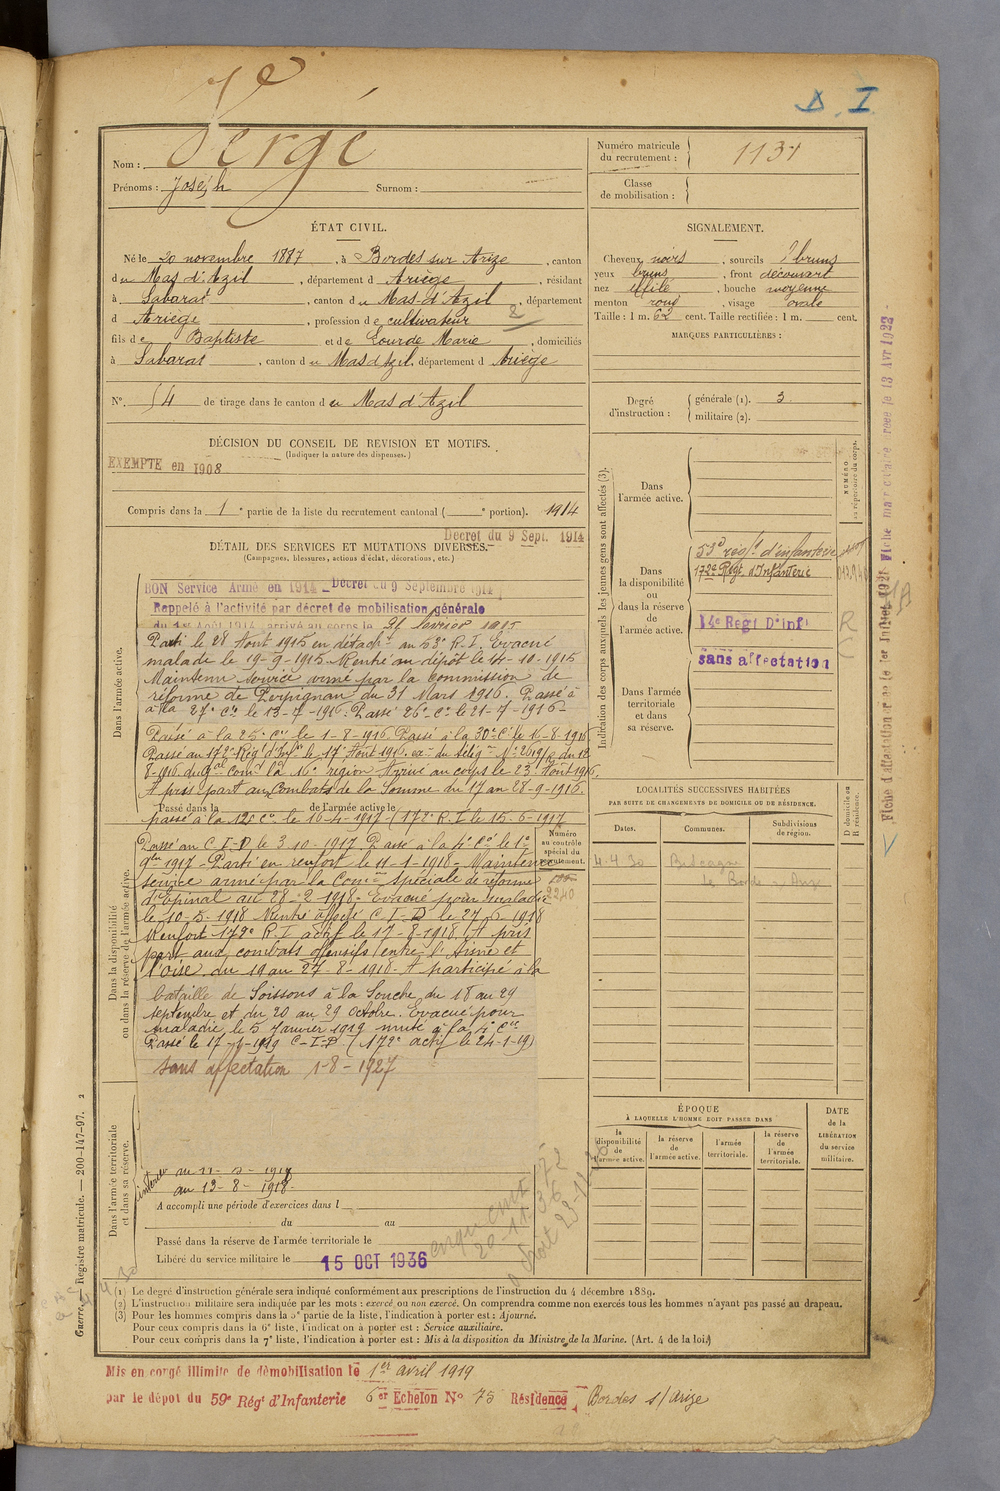 D. I
Nom : Vergé
Prénoms : Joseph Surnom :
Numéro matricule du recrutement : 1131
Classe de mobilisation :
ÉTAT CIVIL.
Né le 20 novembre 1887, à Bordes sur Arize, canton
du Mas d'Azil, département d Ariège, résidant
à Sabarat, canton du Mas-d'Azil, département
d Ariège, profession de cultivateur
fils de Baptiste et de Lourde Marie, domiciliés
à Sabarat, canton du Mas d'Azil, département d Ariège
N° 54 de tirage dans le canton du Mas d'Azil
SIGNALEMENT.
Cheveux noirs, sourcils bruns
yeux bruns, front découvert
nez effilé, bouche moyenne
menton rond, visage ovale
Taille : 1 m. 62 cent. Taille rectifiée : 1 m. cent.
MARQUES PARTICULIÈRES :
Degré d'instruction : générale (1). 3
militaire (2).
DÉCISION DU CONSEIL DE REVISION ET MOTIFS.
(Indiquer la nature des dispenses.)
EXEMPTE en 1908
Compris dans la 1e partie de la liste du recrutement cantonal ( e portion). 1914
Décret du 9 Sept. 1914
DÉTAIL DES SERVICES ET MUTATIONS DIVERSES.
(Campagnes, blessures, actions d'éclat, décorations, etc.)
BON Service Armé en 1914 - Décret du 9 Septembre 1914
Rappelé à l'activité par décret de mobilisation générale
du 1er Août 1914, arrivé au corps le 21 février 1915
Parti le 28 Aout 1915 en détacht au 53e R.I. Evacué
malade le 19-9-1915 Rentré au dépôt le 14-10-1915
Maintenu service armé par la Commission de
réforme de Perpignan du 31 Mars 1916. Passé à
à la 27e Cie le 13-7-1916. Passé 26e Cie le 21-7-1916-
Passé à la 25e Cie le 1-8-1916. Passé à la 30e Cie le 16-8-1916
Passé au 172e Régt d'Infie le 17 Aout 1916. ex. du télég. N° 2619/R du 12
8-1916 du Gal Comt la 16e région Arrivé au corps le 23 Aout 1916.
A pris part aux Combats de la Somme du 17 au 28-9-1916.
Passé dans la de l'armée active le
passé à la 12e Cie le 16-4-1917 - (172e R.I le 15-6-1917
Passé au C.I.D le 3-10-1917. Passé à la 4e Cie le 1er
9bre 1917 - Parti en renfort le 11-1-1918 - Maintenu
service armé par la Comon spéciale de réforme
d'Epinal du 28-2-1918- Evacué pour maladie
le 10-5-1918 Rentré affecté C-I-D le 27-6-1918
Renfort 172e R.I actif le 17-8-1918 (A pris
part aux combats offensifs entre l'Aisne et
l'Oise du 19 au 27-8-1918. A participé à la
bataille de Soissons à la Souche du 18 au 29
septembre et du 20 au 29 octobre. Evacué pour
maladie le 5 Janvier 1919 muté à la 4e Cie
Passé le 17-1-1919 C-I-D (172e actif le 24-1-19)
sans affectation 1-8-1927
A accompli une période d'exercices dans l
du au
Passé dans la réserve de l'armée territoriale le
Libéré du service militaire le 15 OCT 1936
Dans l'armée active.
Dans la disponibilité
ou dans la réserve de l'armée active.
Dans l'armée territoriale
et dans sa réserve.
Numéro au contrôle spécial du recrutement.
2240
Indication des corps auxquels les jeunes gens sont affectés (3).
Dans l'armée active.
NUMÉRO au répertoire du corps.
Dans la disponibilité ou dans la réserve de l'armée active.
53e régt d'infanterie
172e Régt d'Infanterie
14e Régt D'Infie
sans affectation
Dans l'armée territoriale et dans sa réserve.
LOCALITÉS SUCCESSIVES HABITÉES
PAR SUITE DE CHANGEMENTS DE DOMICILE OU DE RÉSIDENCE.
Dates. Communes. Subdivisions de région. D domicile ou R résidence.
4-4-30
ÉPOQUE
À LAQUELLE L'HOMME DOIT PASSER DANS
la disponibilité de l'armée active.
la réserve de l'armée active.
l'armée territoriale.
la réserve de l'armée territoriale.
DATE de la LIBÉRATION du service militaire.
Fiche d'affectation
Guerre. — Registre matricule. — 200-147-97. 2
(1) Le degré d'instruction générale sera indiqué conformément aux prescriptions de l'instruction du 4 décembre 1889.
(2) L'instruction militaire sera indiquée par les mots : exercé ou non exercé. On comprendra comme non exercés tous les hommes n'ayant pas passé au drapeau.
(3) Pour les hommes compris dans la 5e partie de la liste, l'indication à porter est : Ajourné.
Pour ceux compris dans la 6e liste, l'indication à porter est : Service auxiliaire.
Pour ceux compris dans la 7e liste, l'indication à porter est : Mis à la disposition du Ministre de la Marine. (Art. 4 de la loi.)
Mis en congé illimité de démobilisation le 1er avril 1919
par le dépôt du 59e Régt d'Infanterie 6er Echelon N° 75 Résidence Bordes s/ Arize